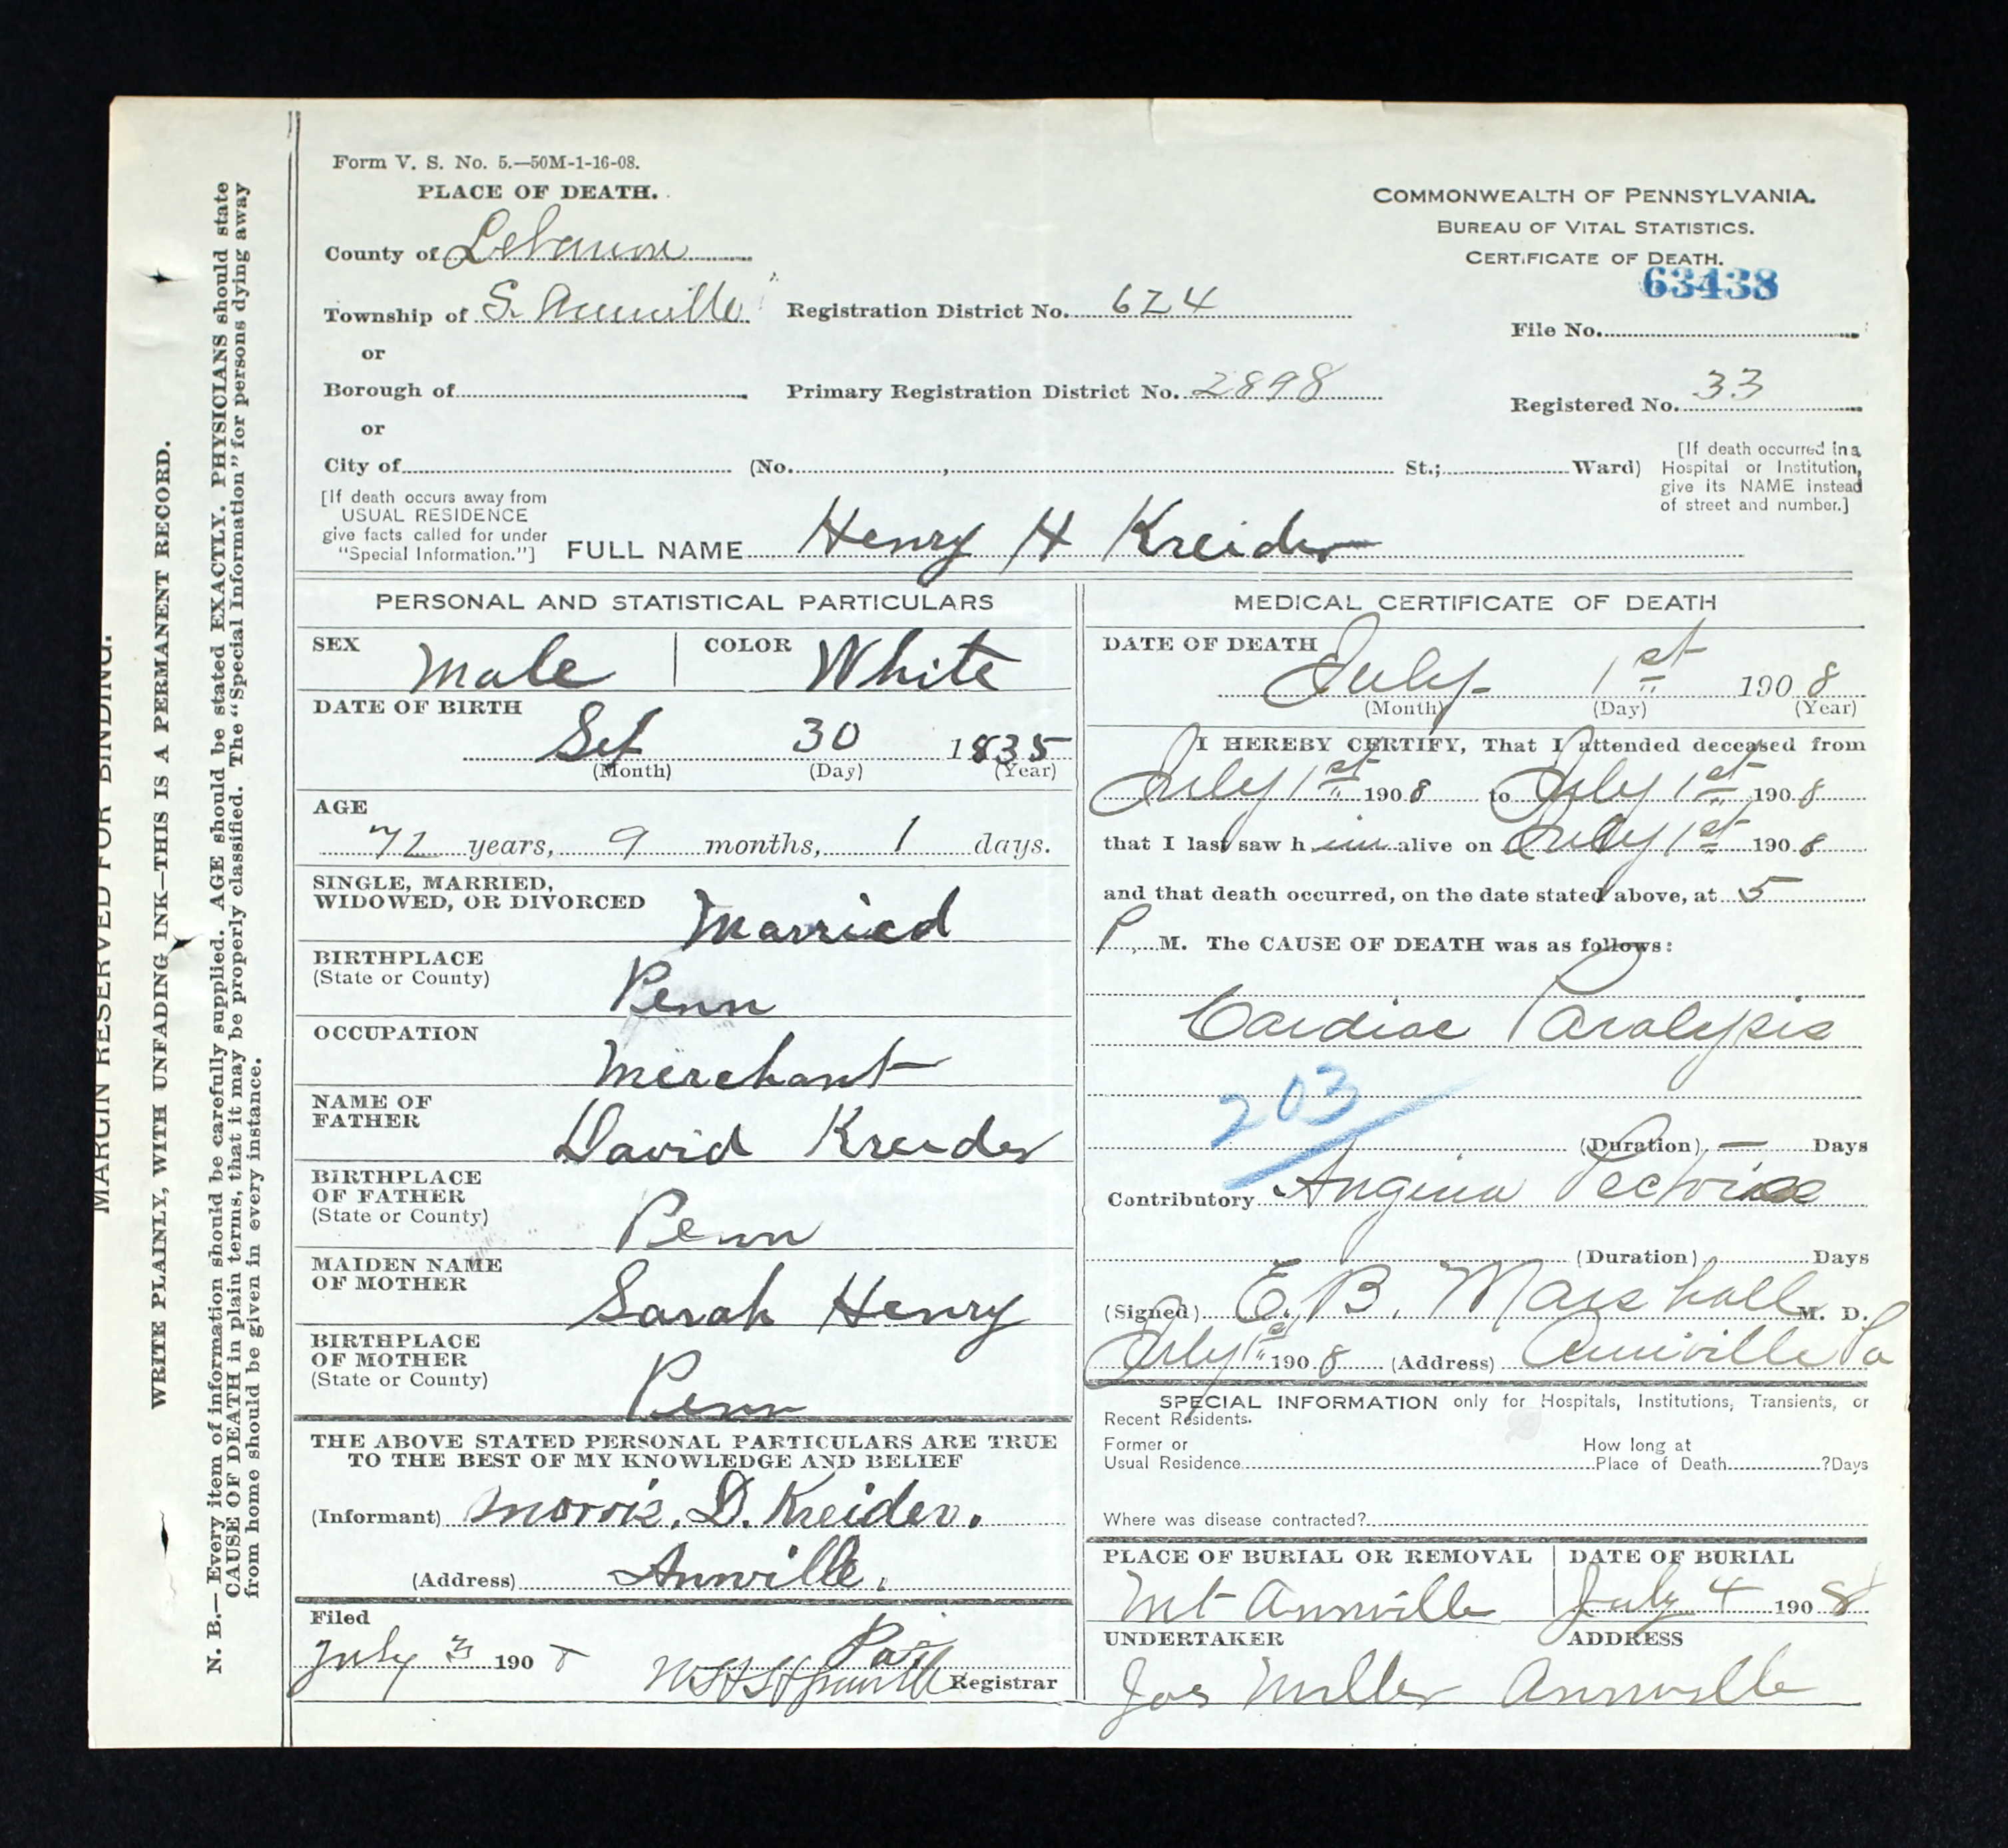 Form V. S. No. 5.—50M-1-16-08.
PLACE OF DEATH.
COMMONWEALTH OF PENNSYLVANIA.
BUREAU OF VITAL STATISTICS.
CERTIFICATE OF DEATH.
63438
County of Lebanon
Township of S. Annville Registration District No. 624
File No.
or
Borough of Primary Registration District No. 2898
Registered No. 33
or
City of (No. , St.; Ward)
[If death occurred in a
Hospital or Institution,
give its NAME instead
of street and number.]
[If death occurs away from
USUAL RESIDENCE
give facts called for under
"Special Information."]
FULL NAME Henry H Kreider
PERSONAL AND STATISTICAL PARTICULARS
SEX Male COLOR White
DATE OF BIRTH
Set 30 1835
(Month) (Day) (Year)
AGE
72 years, 9 months, 1 days.
SINGLE, MARRIED,
WIDOWED, OR DIVORCED Married
BIRTHPLACE
(State or County) Penn
OCCUPATION
Merchant
NAME OF
FATHER David Kreider
BIRTHPLACE
OF FATHER
(State or County) Penn
MAIDEN NAME
OF MOTHER Sarah Henry
BIRTHPLACE
OF MOTHER
(State or County) Penn
THE ABOVE STATED PERSONAL PARTICULARS ARE TRUE
TO THE BEST OF MY KNOWLEDGE AND BELIEF
(Informant) Morris. D. Kreider.
(Address) Annville.
Pa.
Filed
July 3 1908 Registrar
MEDICAL CERTIFICATE OF DEATH
DATE OF DEATH
July 1st 1908
(Month) (Day) (Year)
I HEREBY CERTIFY, That I attended deceased from
July 1st 1908 to July 1st 1908
that I last saw him alive on July 1st 1908
and that death occurred, on the date stated above, at 5
P. M. The CAUSE OF DEATH was as follows:
Cardiac Paralysis
203
(Duration) — Days
Contributory Angina Pectoris
(Duration) Days
(Signed) E. B. Marshall M. D.
July 1st 1908 (Address) Annville Pa
SPECIAL INFORMATION only for Hospitals, Institutions, Transients, or
Recent Residents.
Former or
Usual Residence
How long at
Place of Death ?Days
Where was disease contracted?
PLACE OF BURIAL OR REMOVAL DATE OF BURIAL
Mt Annville July 4 1908
UNDERTAKER ADDRESS
Jos Miller Annville
MARGIN RESERVED FOR BINDING.
WRITE PLAINLY, WITH UNFADING INK—THIS IS A PERMANENT RECORD.
N. B.—Every item of information should be carefully supplied. AGE should be stated EXACTLY. PHYSICIANS should state
CAUSE OF DEATH in plain terms, that it may be properly classified. The "Special Information" for persons dying away
from home should be given in every instance.